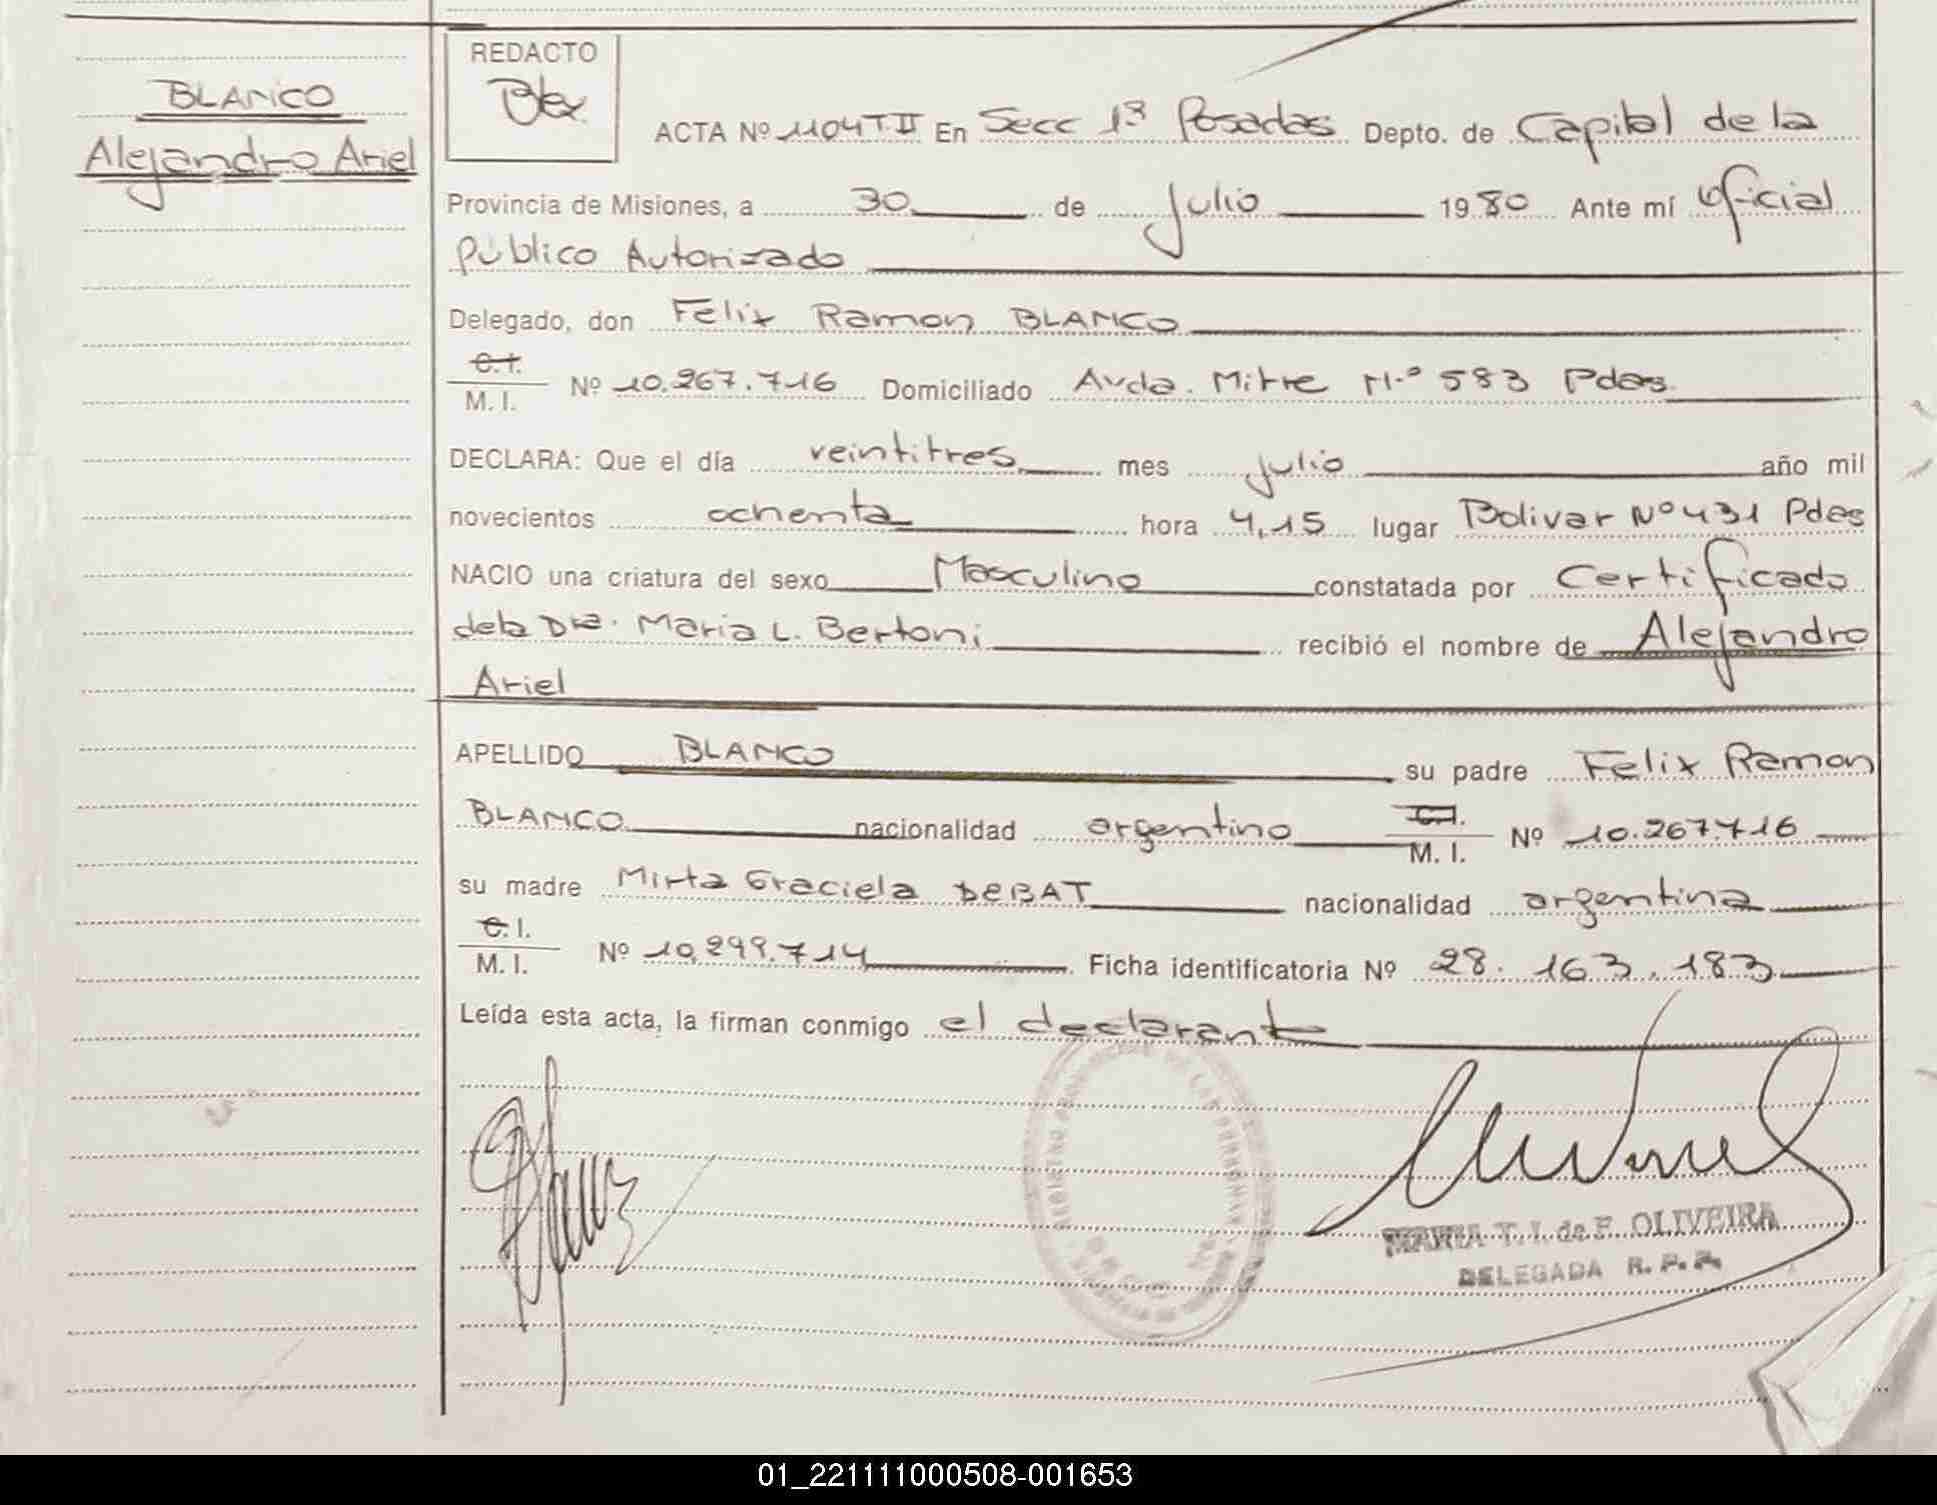 BLANCO
Alejandro Ariel
REDACTO
ACTA Nº 1104 T.II En Secc 1ª Posadas Depto. de Capital de la
Provincia de Misiones, a 30 de julio 1980 Ante mí Oficial
Público Autorizado
Delegado, don Felix Ramon BLANCO
C.I.
M. I. Nº 10.267.716 Domiciliado Avda. Mitre N.º 583 Pdas.
DECLARA: Que el día veintitres mes julio año mil
novecientos ochenta hora 4,15 lugar Bolivar Nº 431 Pdas
NACIO una criatura del sexo Masculino constatada por Certificado
de la Dra. Maria L. Bertoni recibió el nombre de Alejandro
Ariel
APELLIDO BLANCO su padre Felix Ramon
BLANCO nacionalidad argentino C.I. M. I. Nº 10.267.716
su madre Mirta Graciela DEBAT nacionalidad argentina
C.I.
M. I. Nº 10.299.714 Ficha identificatoria Nº 28.163.183
Leída esta acta, la firman conmigo el declarante
MARIA T. I. de F. OLIVEIRA
DELEGADA R. P. P.
01_221111000508-001653